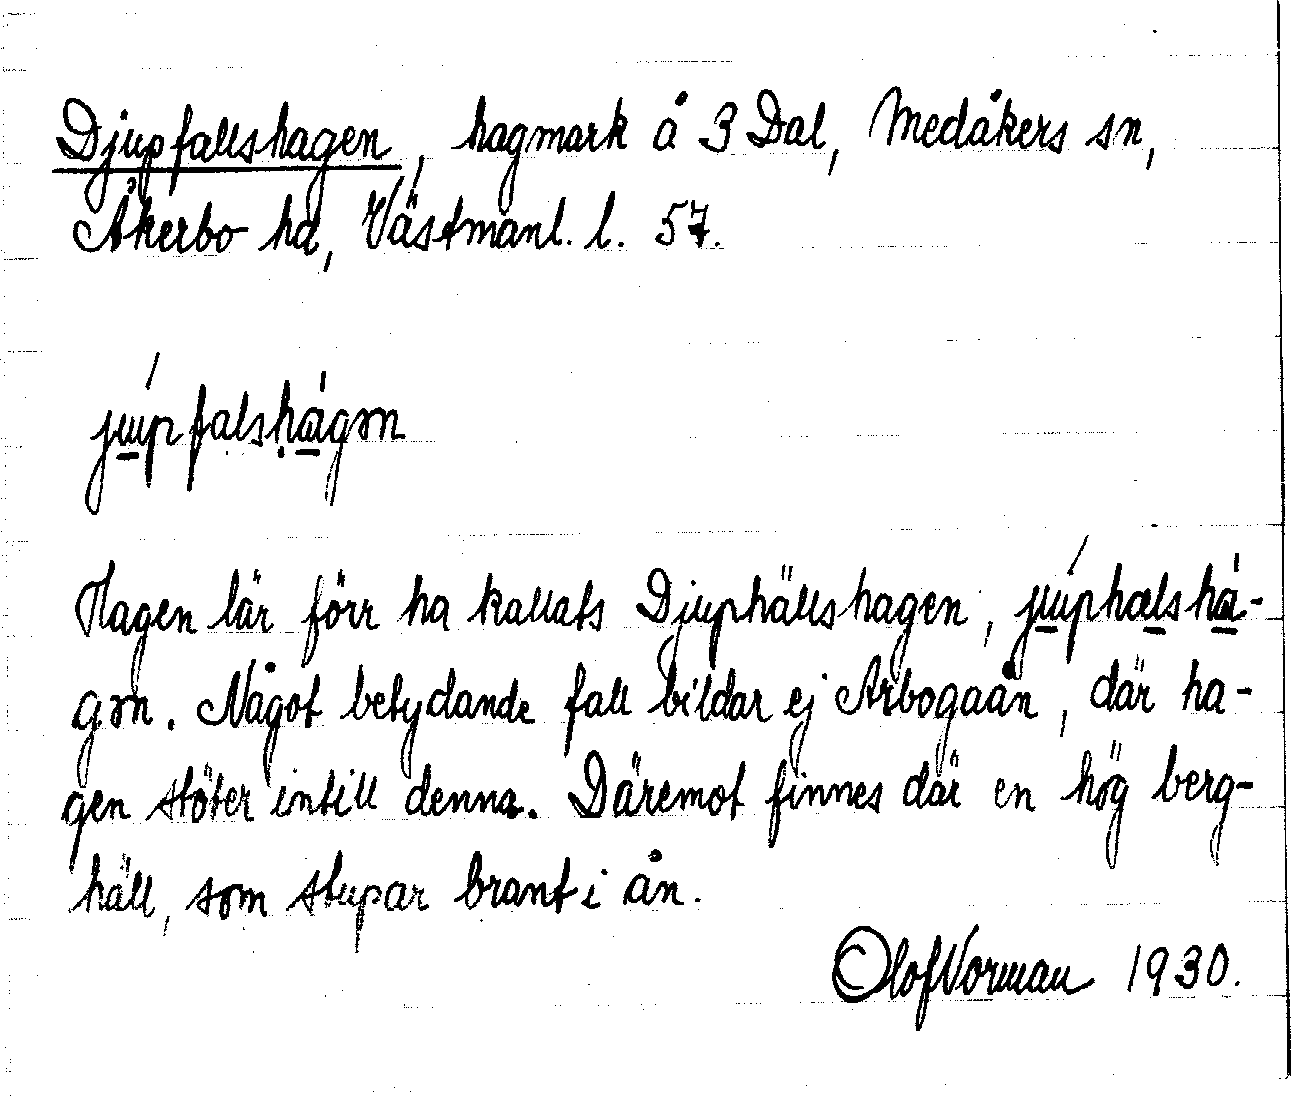 Djupfallshagen, hagmark å 3 Dal, Medåkers sn,
Åkerbo hd, Västmanl. l. 57.
jɯ́pfalshágən
Hagen lär förr ha kallats Djuphällshagen, jɯ́phælshá-
gən. Något betydande fall bildar ej Arbogaån, där ha-
gen stöter intill denna. Däremot finnes där en hög berg-
häll, som stupar brant i ån.
Olof Norman 1930.